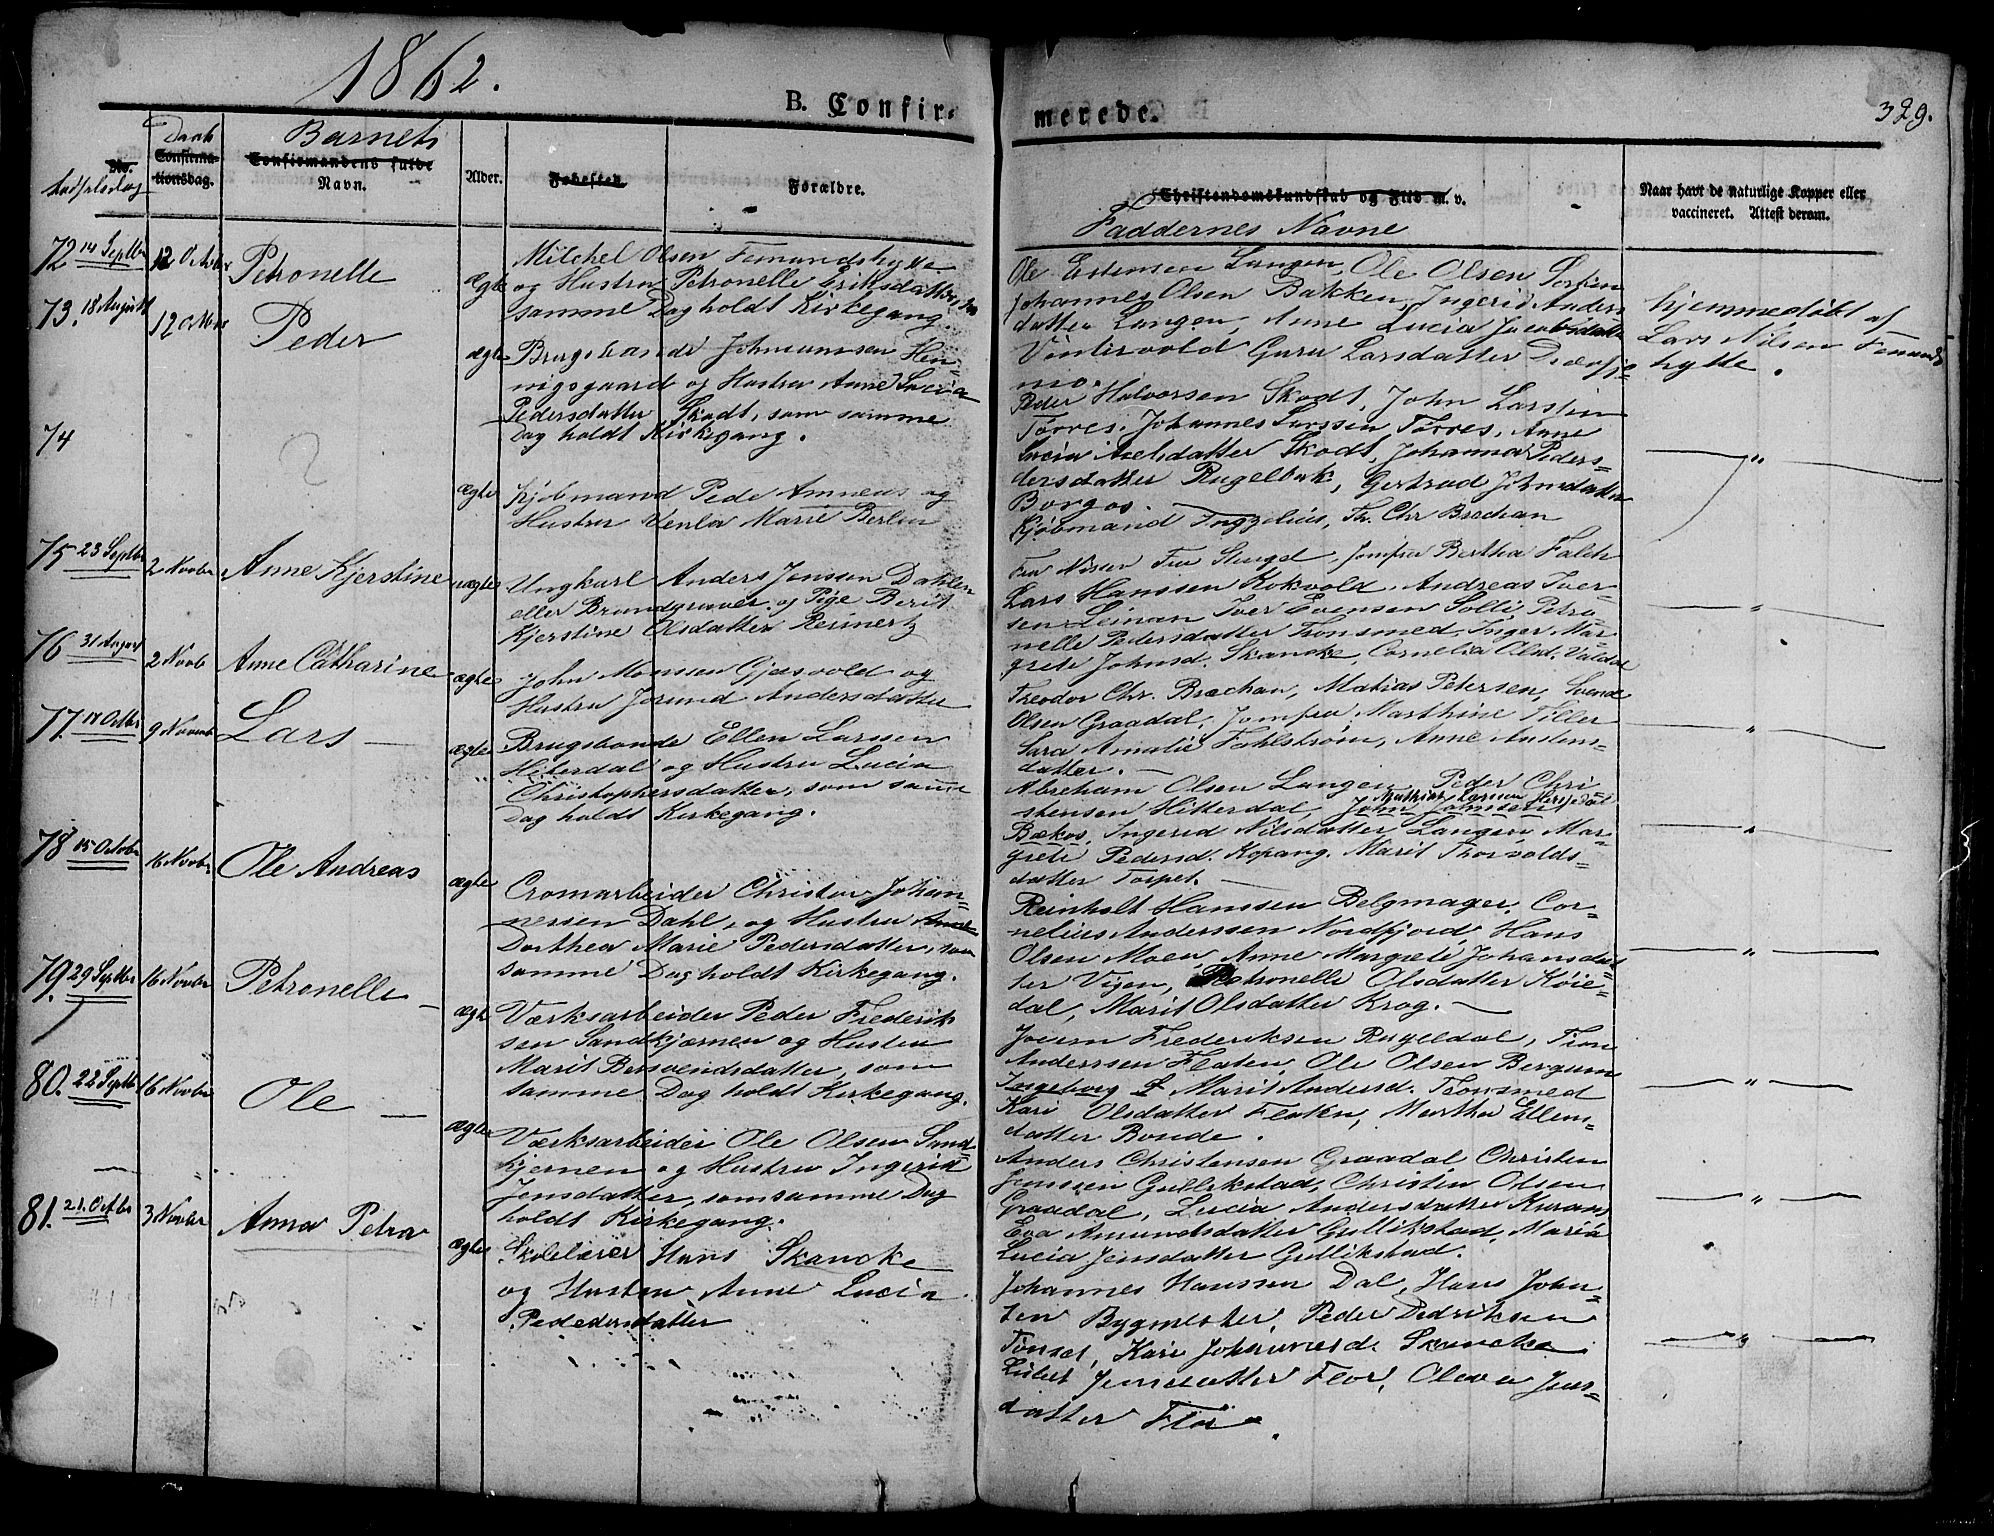 1862.
B. Confirmerede.
329.
No.
Fødselsdag
Daab
Confirmationsdag.
Barnets
Confirmandens fulde
Navn.
Alder.
Fødested
Forældre.
Christendomskundskab og Flid m. v.
Faddernes Navne
Naar havt de naturlige Kopper eller
vaccineret. Attest derom.
72 14 Septbr
12 Octobr
Petronelle
ægte
Michel Olsen Femundshytte
og Hustru Petronelle Eriksdatter, som
samme Dag holdt Kirkegang.
Ole Estensen Langen, Ole Olsen Sorken
Johannes Olsen Bakken, Ingerid Anders
datter Langen, Anne Lucia Jacobsdatter
Vintervold Guru Larsdatter
mo.
hjemmedøbt af
Lars Nilsen Femunds
hytte.
73. 18 August
12 Octbr
Peder
ægte
Brugsbonde Johannes Hen
nigsgaard og Hustru Anne Lucia
Pedersdatter Skodt, som samme
Dag holdt Kirkegang.
Peder Halvorsen Skodt, John Larsen
Torres, Johannes Larssen Torres, Anne
Lucia Axelsdatter Skodt, Johanna Peders=
dersdatter Rugelbak, Gertrud Johnsdatter
Borgos.
74
ægte
Kjøbmand Peder Amneus og
Hustru Venla Marie Berlin
Kjøbmand Engzelius, Th. Chr Bræchan
Fru Nisser Fru Stengel, Jomfru Bertha Falch
75 23 Septbr
2 Novbr
Anne Kjerstine
uægte
Ungkarl Anders Jonsson Dahlen
eller Brandgraver og Pige Berit
Kjerstine Olsdatter Reinertz
Lars Hanssen Kokvold, Andreas Iver=
sen Leinan Iver Evensen Solli Petro
nelle Pedersdatter Tronsmed, Inger Mar
grete Johnsd. Skancke, Cornelia Olsd. Valdal
76 31 August
2 Novb
Anne Catharine
ægte
John Monsen Gjersvold og
Hustru Jorund Andersdatter
Theodor Chr. Bræchan, Mathias Petersen, Svend
Olsen Graadal, Jomfru Marthine Tiller
Sara Amalie Fahlstrøm, Anne Anders=
datter.
77 17 Octbr
9 Novemb
Lars
ægte
Brugsbonde Ellen Larssen
Hiterdal og Hustru Lucia
Christophersdatter, som samme
Dag holdt Kirkegang.
Abraham Olsen Langen, Peder Chri
stensen Hitterdal, John Jonssen
Mathias Larssen Herjedal
Bækos, Ingerid Nilsdatter Langen Mar=
grete Pedersd. Kopang. Marit Thorvalds=
datter Torpet.
78 15 Octobr
16 Novbr
Ole Andreas
ægte
Cromarbeider Christen Johan=
nessen Dahl, og Hustru Anne
Dorthea Marie Pedersdatter, som
samme Dag holdt Kirkegang.
Reinholt Hanssen Belgmager, Cor=
nelius Anderssen Nordfjord, Hans
Olsen Moen, Anne Margrete Johansdat=
ter Vigen, Petronelle Olsdatter Køie=
dal, Marit Olsdatter Krog.
79. 29 Septbr
16 Novbr
Petronelle
ægte
Værksarbeider Peder Frederik
sen Sandkjærnen og Hustru
Marit Bersvendsdatter, som
samme Dag holdt Kirkegang.
Joern Frederiksen Rugeldal, Tron
Anderssen Floten, Ole Olsen Bergum
Ingeborg Marit Andersd. Tronsmed
Kari Olsdatter Floten, Martha Ellen=
datter Bonde.
80. 22 Septbr
16 Novbr
Ole
ægte
Værksarbeider Ole Olsen Sand=
kjernen og Hustru Ingerid
Jensdatter, som samme Dag
holdt Kirkegang.
Anders Christensen Graadal Christen
Jenssen Gullikstad, Christen Olsen
Graadal, Lucia Andersdatter Kuraas
Eva Amundsdatter Gullikstad, Maria
Lucia Jensdatter Gullikstad.
81. 21. Octbr
3 Novbr
Anna Petra
ægte
Skolelærer Hans Skancke
og Hustru Anne Lucia
Pededersdatter
Johannes Hanssen Dal, Hans John=
sen Bygmester, Peder Dedriksen
Tønset, Kari Johannesd. Skancke
Lisbet Jensdatter Flor, Oleva Jens=
datter Flor